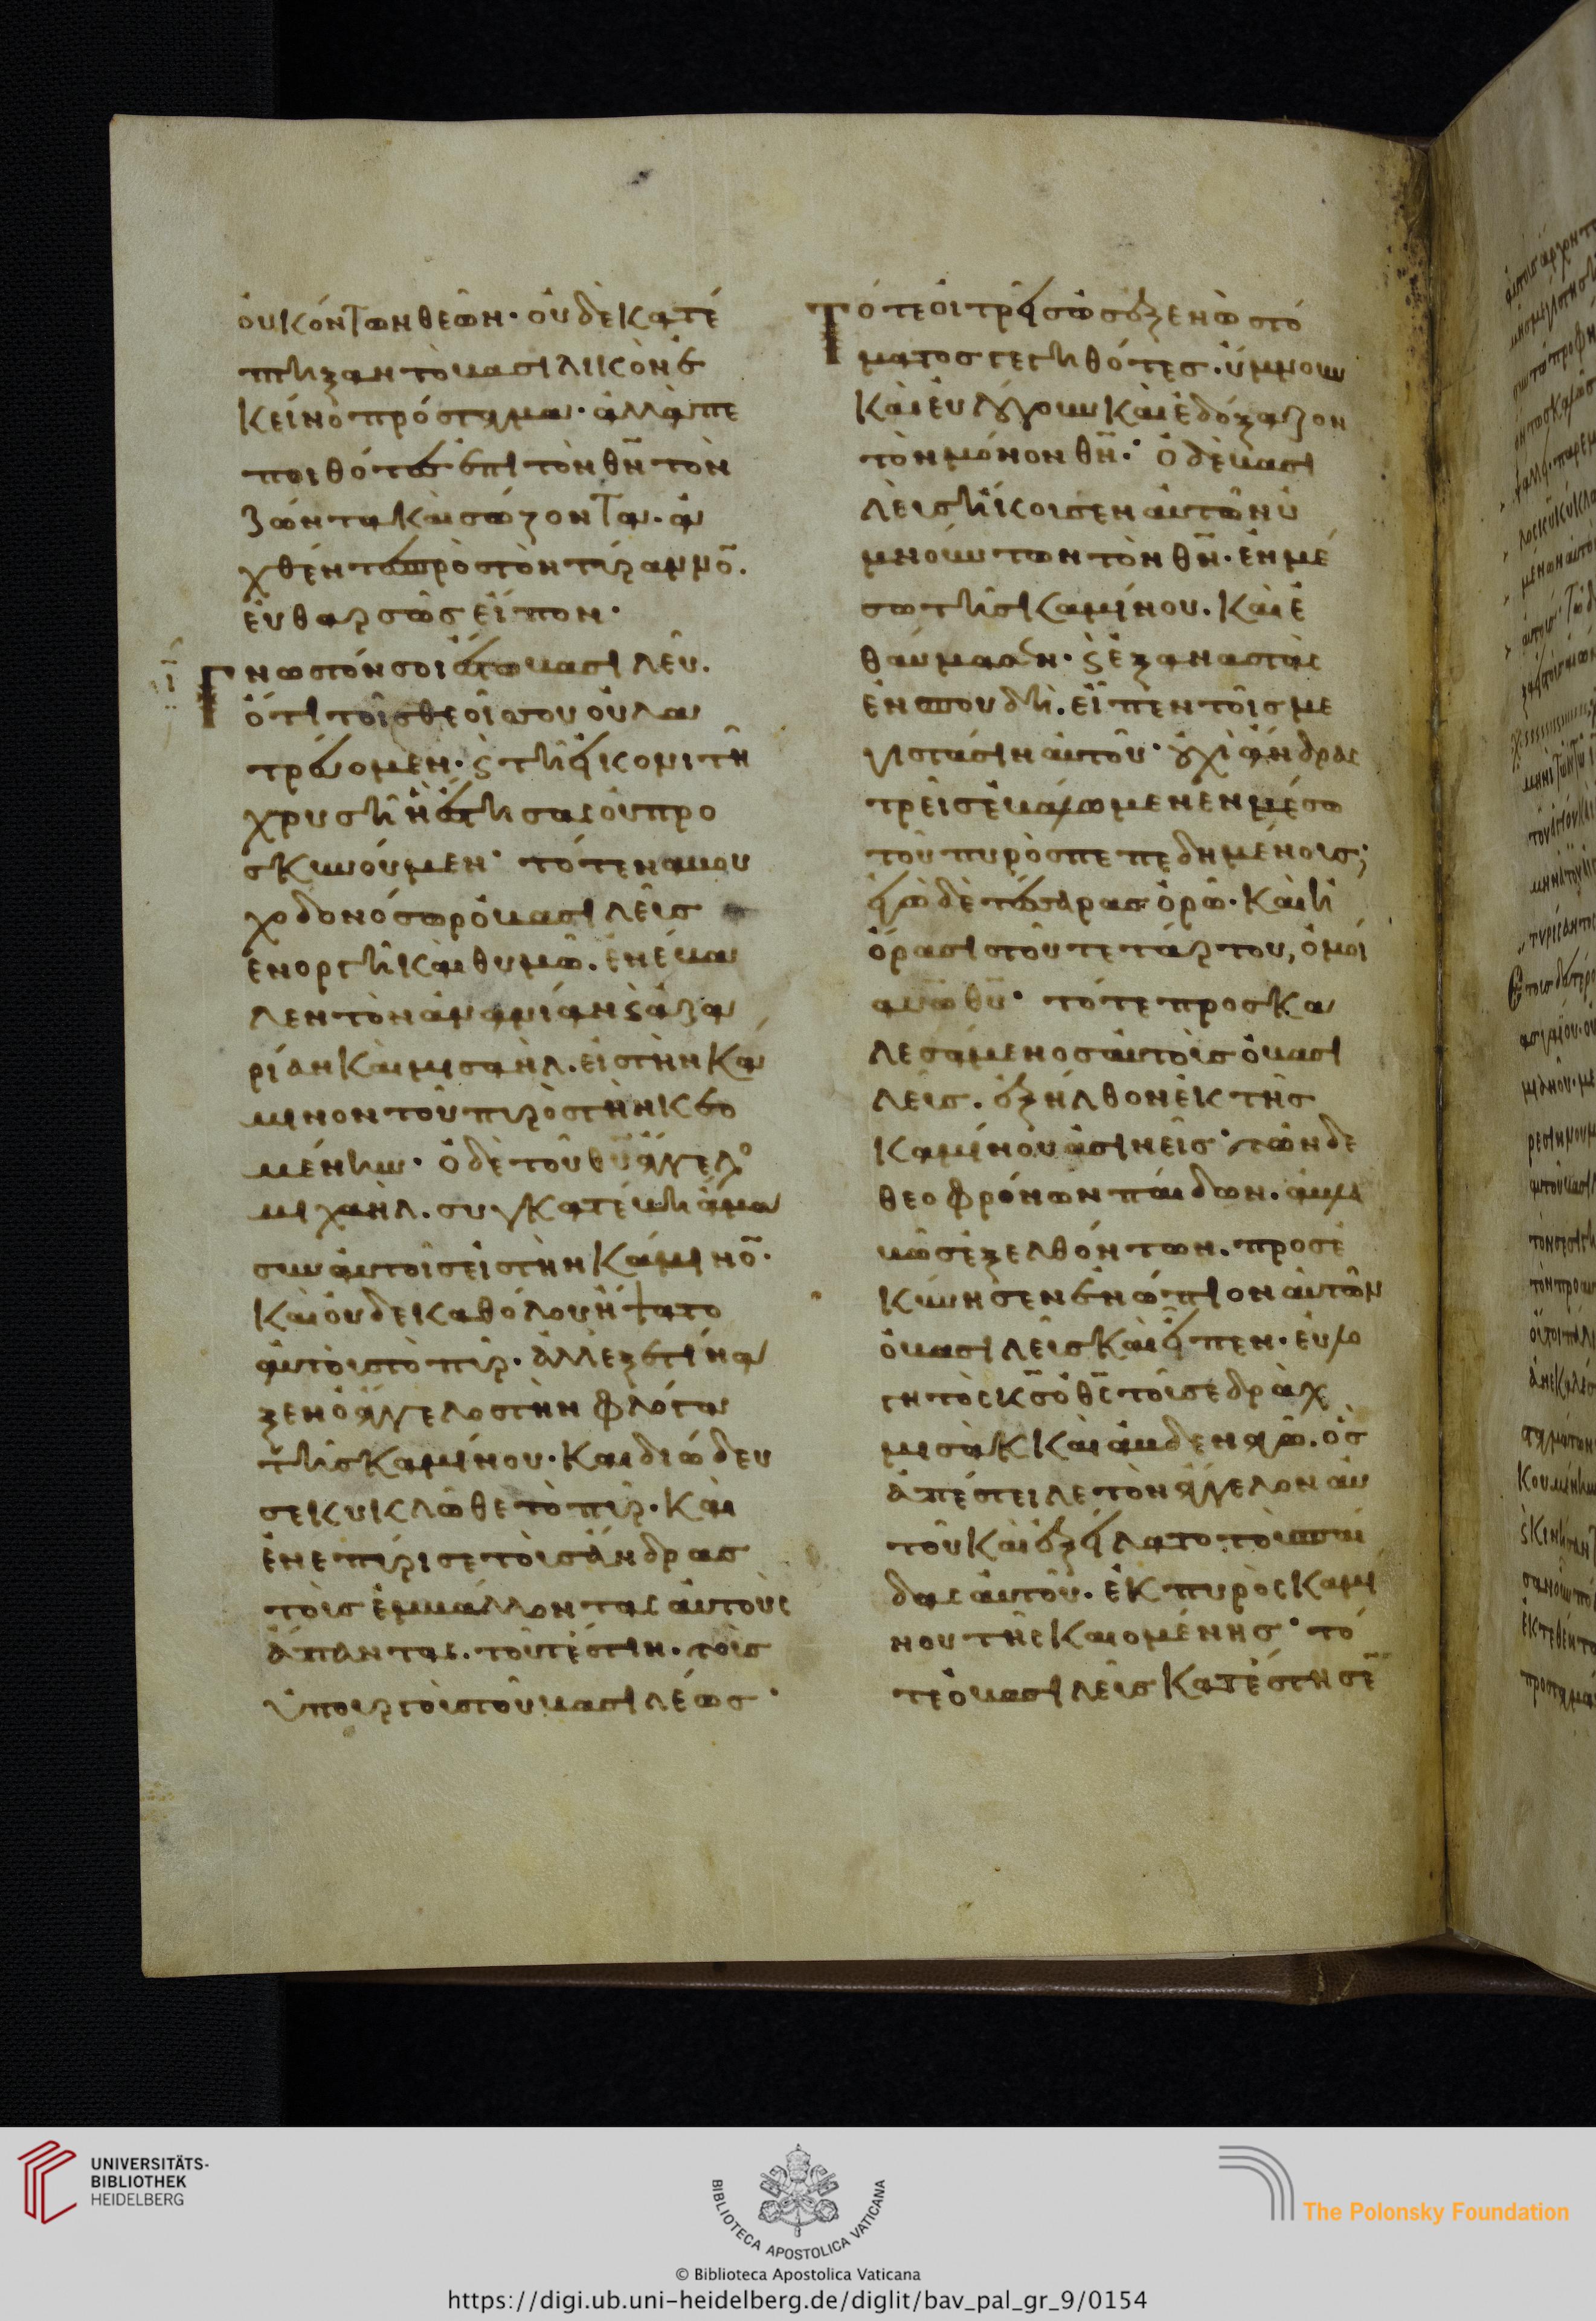 ὀυκόντων θεῶν· οὐδὲ κατέ
πληξαν τὸ βασιλικὸν ἐ
κεῖνο πρόσταγμα· ἀλλὰ πε
ποιθότες ἐπὶ τὸν θν τὸν
ζῶντα καὶ σώζοντα. ἀ
χθέντες πρὸς τὸν τύραννο.
εὐθαρσῶς εἶπον·
Γνωστόν σοι ἔστω βασιλεῦ.
ὅτι τοῖς θεοῖς σου οὐ λα
τρεύομεν· ϛ τῆ εἰκόνι τῆ
χρυσῆ ἧ ἔστησας οὐ προ
σκυνούμεν· τότε ναβου
χοδονόσωρ ὁ βασιλεὺς
ἐν οργῆ καὶ θυμῶ. ἐνέβα
λεν τὸν ἀνανίαν ϛ ἀζα
ρίαν καὶ μισαὴλ. εἰς τὴν κά
μινον τοῦ πυρὸς τὴν κεο
μένην· ὁ δὲ τοῦ θυ ἄγγελο
μιχαὴλ. συγκατέβη ἅμα
συν αὐτοῖς εἰς τὴν κάμινο·
καὶ οὐδε καθόλου ἥψατο
αὐτοὺς τὸ πυρ· ἀλλ ἐξετίνα
ξεν ὁ ἄγγελος τὴν φλόγα
τῆς καμίνου· και διώδευ
σε κυκλῶθε τὸ πυρ· καὶ
ἐνεπύρισε τοὺς ἄνδρας
τοὺς ἐμβάλλοντας αὐτοὺς
ἅπαντας. τουτέστιν. τοὺς
ὑπουργοὺς τοῦ βασιλέως·
Τότε οἱ τρεῖς ὡς ἐξ ἑνὸς στό
ματος γεγηθότες. ὕμνουν
καὶ εὐλόγουν καὶ ἐδόξαζον
τὸν μόνον θν· ὁ δὲ βασι
λεὺς ἤκουσεν αὐτῶν ὑ
μνούντων τὸν θν· ἐν μέ
σω τῆς καμίνου. καὶ ἐ
θαύμασεν· ϛ ἐξαναστὰς
ἐν σπουδῆ. εἶπεν τοῖς με
γιστᾶσιν αὐτοῦ· οὐχὶ ἄνδρας
τρεῖς ἐβάλωμεν ἐν μέσω
τοῦ πυρὸς πεπεδημένους;
ἐγὼ δὲ τέσσαρας ὁρῶ· καὶ ἡ
ὅρασις τοῦ τετάρτου, ὁμοί
α υω θυ· τότε προσκα
λεσάμενος αὐτοὺς ὁ βασι
λεὺς. ἐξῆλθον ἐκ τῆς
καμίνου ἀσινεῖς· τῶν δε
θεοφρόνων παίδων. ἀβλα
βῶς ἐξελθόντων. προσε
κύνησεν ἐνώπιον αὐτῶν
ὁ βασιλεὺς καὶ εἶπεν· εὐλο
γητὸς κς ὁ θς τοῦ σεδρὰχ
μισὰκ καὶ ἀβδεναγῶ. ὃς
ἀπέστειλε τὸν ἄγγελον αὐ
τοῦ καὶ ἐξείλατο τοὺς παῖ
δας αὐτοῦ. ἐκ πυρὸς καμί
νου τῆς καιομένης· τό
τε ὁ βασιλεὺς κατέστησε
UNIVERSITÄTS-
BIBLIOTHEK
HEIDELBERG
BIBLIOTECA APOSTOLICA VATICANA
The Polonsky Foundation
© Biblioteca Apostolica Vaticana
https://digi.ub.uni-heidelberg.de/diglit/bav_pal_gr_9/0154